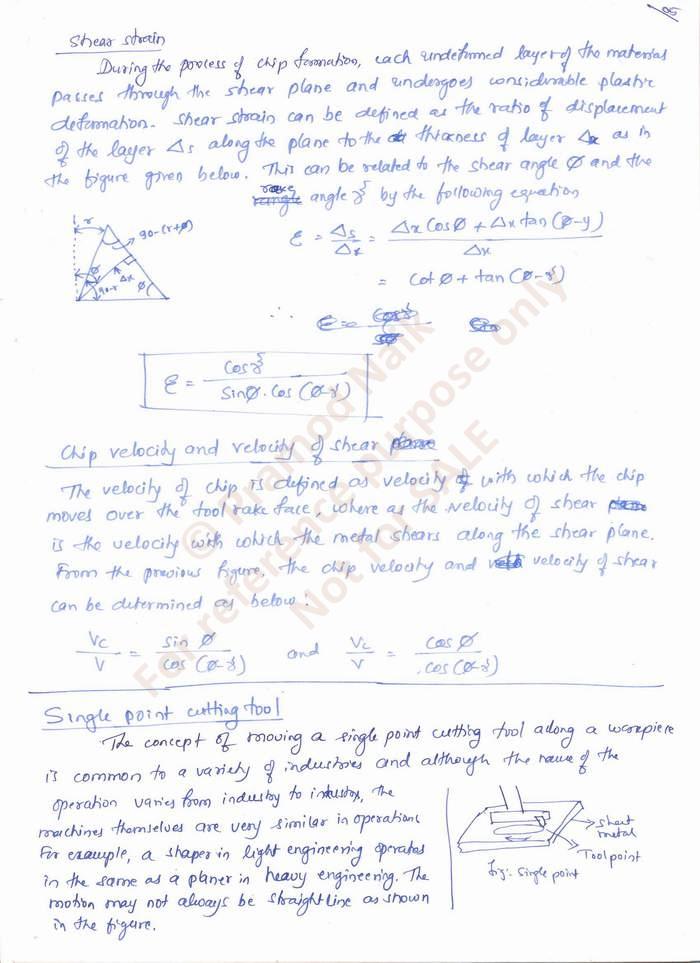 05
Shear strain
During the process of chip formation, each undeformed layer of the material
passes through the shear plane and undergoes considerable plastic
deformation. shear strain can be defined as the ratio of displacement
of the layer Δs along the plane to the thickness of layer Δx as in
the figure given below. This can be related to the shear angle Ø and the
rake angle γ by the following equation
r
90-(r+Ø)
Ø
90-r
Δx
Ø
ε = Δs/Δx = (Δx cosØ + Δx tan(Ø-y))/Δx
= cotØ + tan(Ø-γ)
∴ ε =
ε = cosγ/(sinØ.cos(Ø-γ))
Chip velocity and velocity of shear plane
The velocity of chip is defined as velocity with which the chip
moves over the tool rake face, where as the velocity of shear plane
is the velocity with which the metal shears along the shear plane.
From the previous figure, the chip velocity and velocity of shear
can be determined as below:
Vc/V = sin Ø/cos(Ø-γ) and Vc/V = cosØ/cos(Ø-γ)
Single point cutting tool
The concept of moving a single point cutting tool along a workpiece
is common to a variety of industries and although the name of the
operation varies from industry to industry, the
machines themselves are very similar in operation.
For example, a shaper in light engineering operates
in the same as a planer in heavy engineering. The
motion may not always be straight line as shown
in the figure.
sheet
metal
Tool point
Fig:- single point
© Pramod Naik
For reference purpose only
Not for SALE